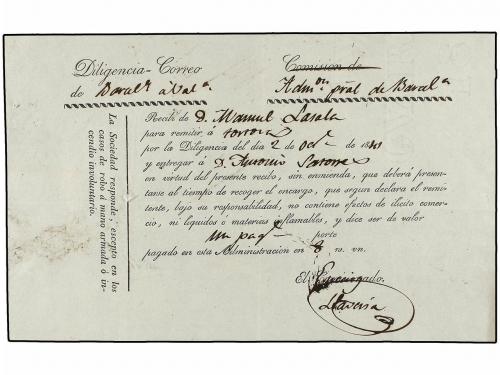 Diligencia-Correo
de Baral.ª à Val.ª
Comision de
Adm.on pral de Baral.ª
Recibí de D. Manuel Lasala
para remitir á
por la Diligencia del dia 2 de Oct.e 1841
y entregar á D. Antonio
en virtud del presente recibo, sin enmienda, que deberá presentarse
al tiempo de recoger el encargo, que segun declara el remitente,
bajo su responsabilidad, no contiene efectos de ilícito comercio,
ni líquidos ó materias inflamables, y dice ser de valor
un paq.e porte
pagado en esta Administracion en 8 rs. vn.
El Encargado.
Llaveria
La Sociedad responde, escepto en los
casos de robo á mano armada ó incendio
involuntario.